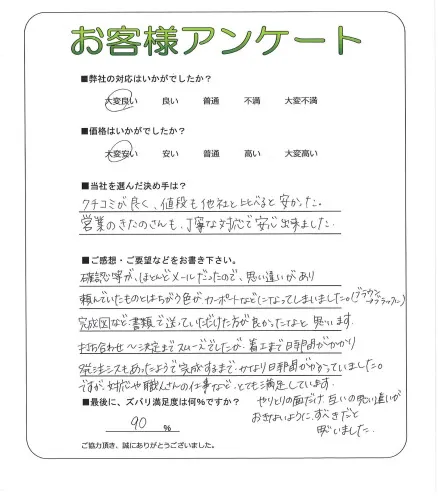 お客様アンケート
■弊社の対応はいかがでしたか?
大変良い 良い 普通 不満 大変不満
■価格はいかがでしたか?
大変安い 安い 普通 高い 大変高い
■当社を選んだ決め手は?
クチコミが良く、値段も他社と比べると安かった。
営業のきたのさんも、丁寧な対応で安心出来ました。
■ご感想・ご要望などをお書き下さい。
確認等が、ほとんどメールだったので、思い違いがあり
頼んでいたものとはちがう色が カーポートなどになってしまいました。(ブラウン→ブラック)
完成図など書類で送っていただけた方が良かったなと 思います。
打ち合わせ〜決定までスムーズでしたが、着工まで日数がかかり
発注ミスもあったようで完成するまで、かなり日数がかかっていました。
ですが、対応や職人さんの仕事など、とても満足しています。
やりとりの面だけ、互いの思い違いが
おきないように、すべきだと
思いました。
■最後に、ズバリ満足度は何%ですか?
90 %
ご協力頂き、誠にありがとうございました。